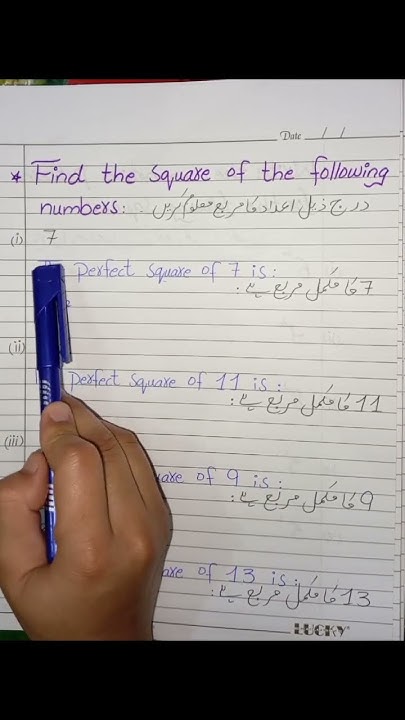 Date / /
* Find the square of the following
numbers: درج ذیل اعداد کا مربع معلوم کریں
(i) 7
perfect square of 7 is:
7 کا مکمل مربع ہے:
2
(ii)
perfect square of 11 is:
11 کا مکمل مربع ہے:
(iii)
of 9 is:
9 کا مکمل مربع ہے:
of 13 is:
13 کا مکمل مربع ہے:
LUCKY